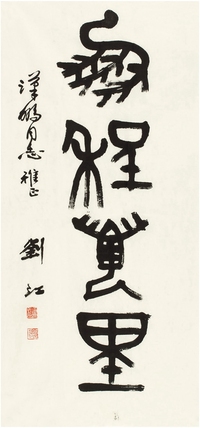 鵬程萬里
漢鵬同志雅正
劉江